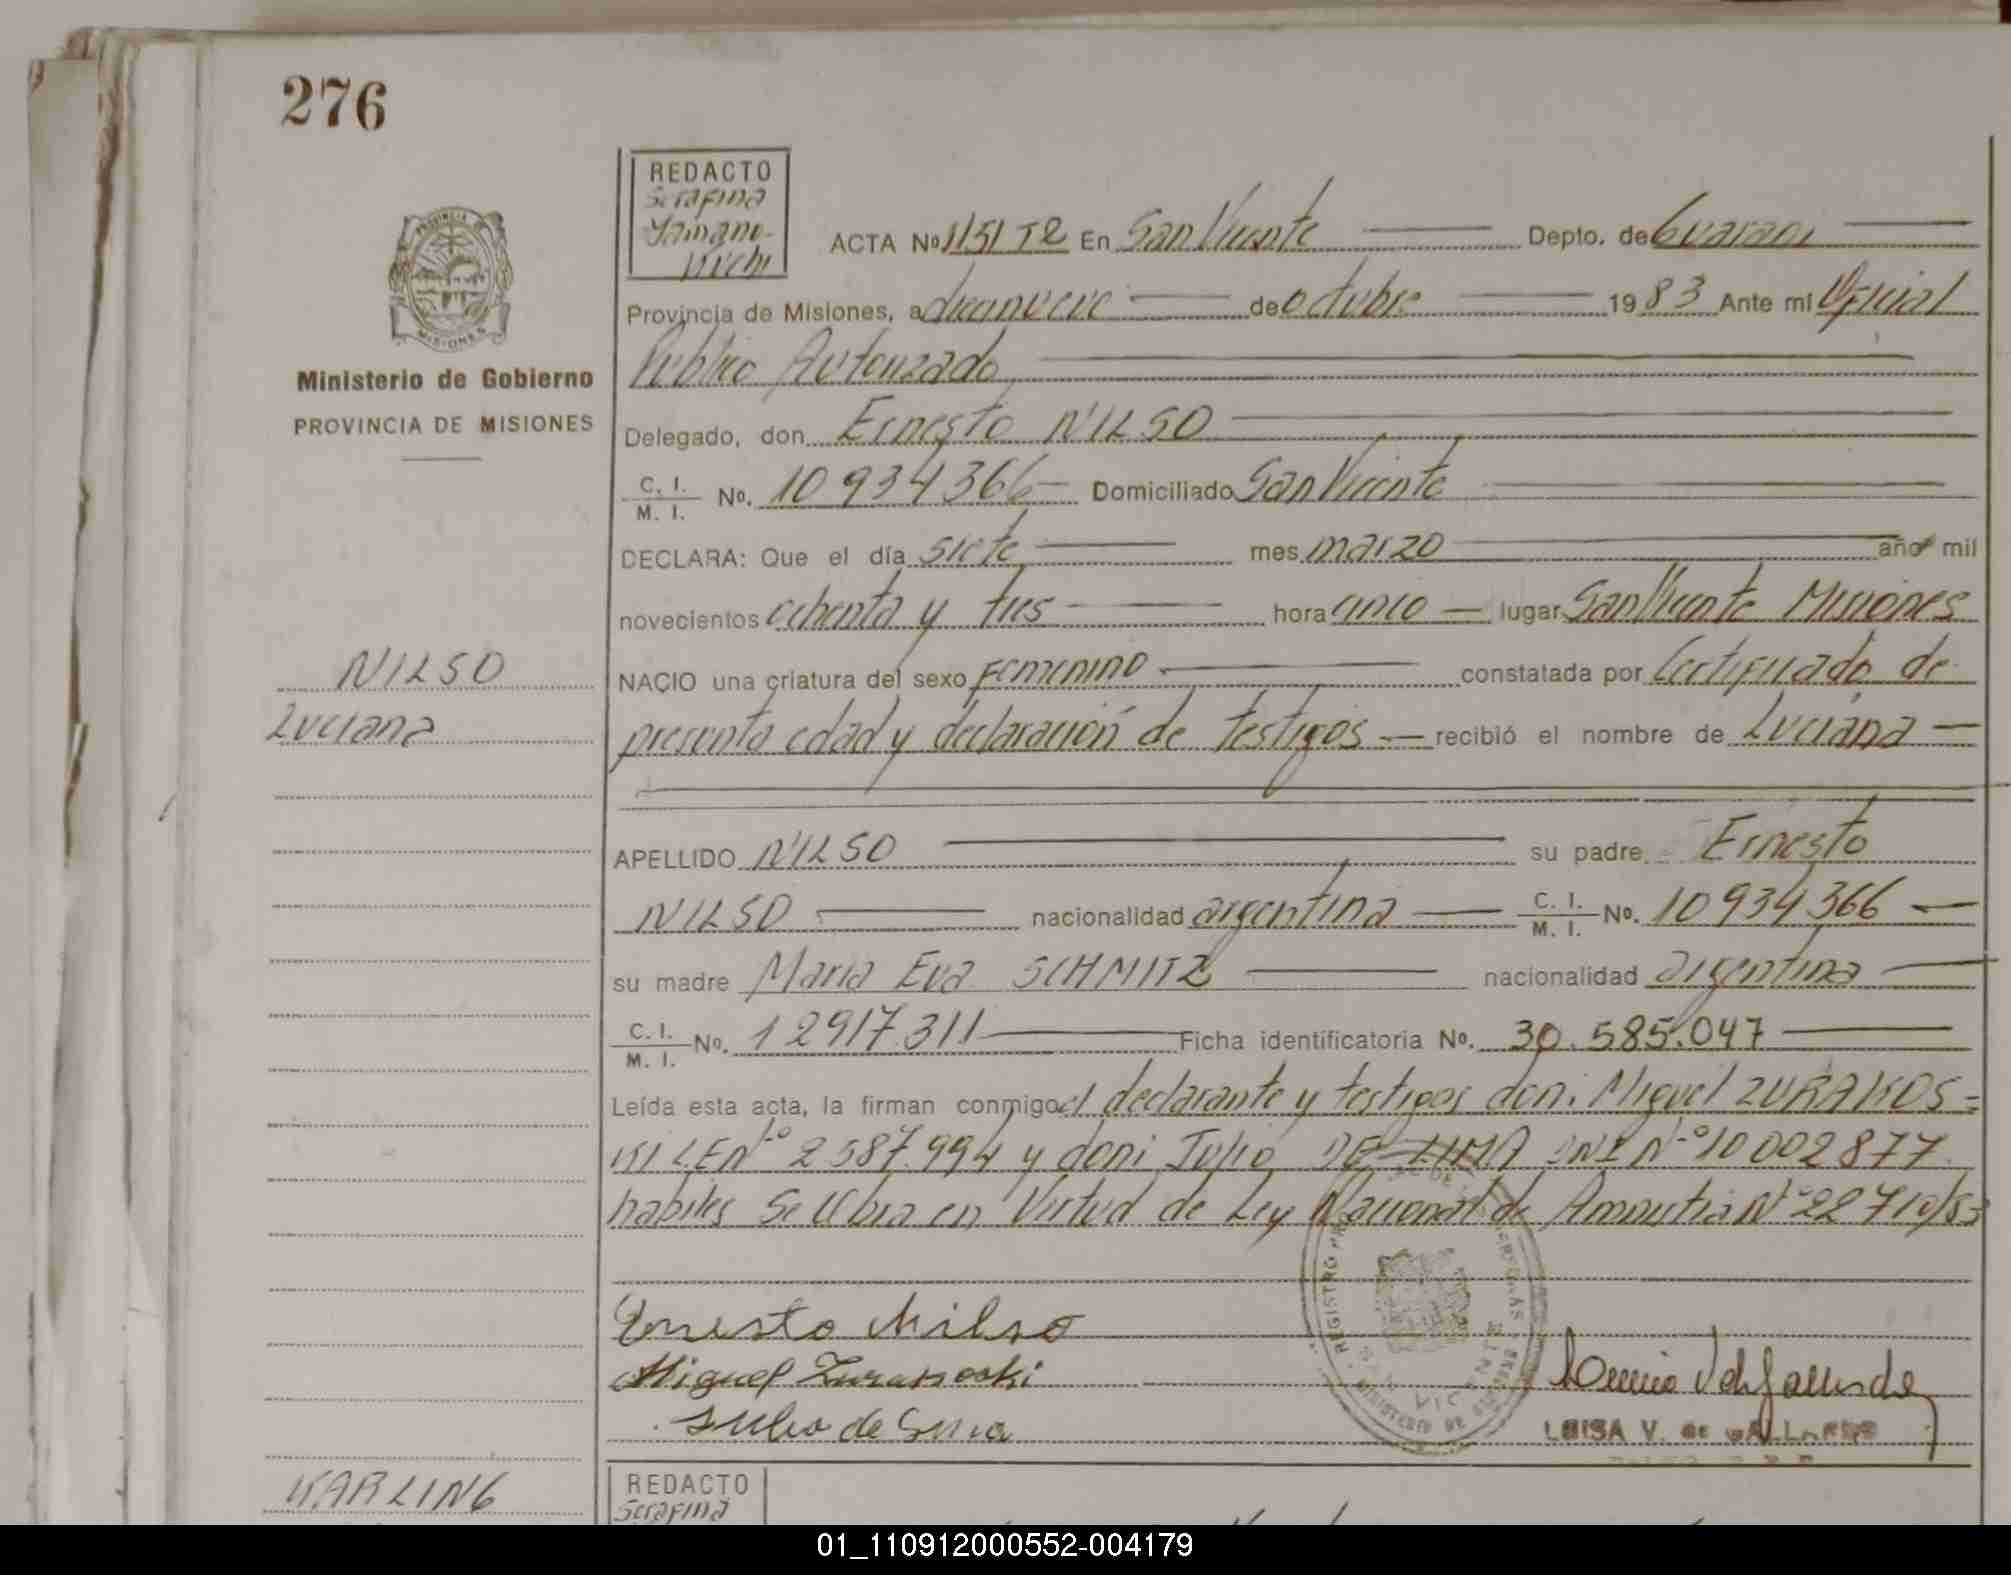 276
REDACTO
Serafina
Yamano-
vichi
ACTA No 1151 T2 En San Vicente Depto. de Guarani
Provincia de Misiones, a diecinueve de octubre 1983 Ante mi Oficial
Publico Autorizado
Ministerio de Gobierno
PROVINCIA DE MISIONES
Delegado, don Ernesto NILSO
C. I.
M. I. No. 10 934 366 Domiciliado San Vicente
DECLARA: Que el día siete mes marzo año mil
novecientos ochenta y tres hora cinco lugar San Vicente Misiones
NILSO
NACIO una criatura del sexo Femenino constatada por Certificado de
Luciana
presunta edad y declaración de testigos recibió el nombre de Luciana
APELLIDO NILSO su padre Ernesto
NILSO nacionalidad argentina C. I.
M. I. No. 10 934 366
su madre Maria Eva SCHMITZ nacionalidad argentina
C. I.
M. I. No. 12917.311 Ficha identificatoria No. 30.585.047
Leída esta acta, la firman conmigo el declarante y testigos don: Miguel ZURAKOS=
KI L.E Nº 2587.994 y don: Julio DE LIMA DNI Nº 10002877
habiles Se labra en Virtud de Ley Nacional de Amnistia Nº 22710/83
Ernesto Nilso
Miguel Zurakoski
Julio de Lima
LUISA V. de GALLARDO
KARLING
REDACTO
Serafina
01_110912000552-004179